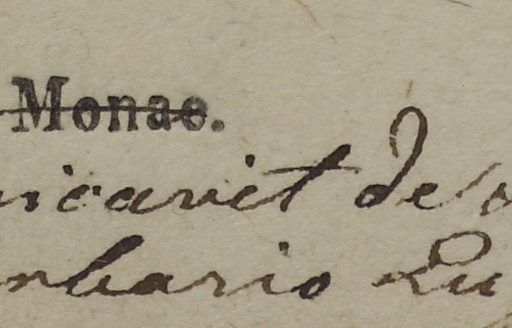 Monac.
nicavit de
rbario Lu